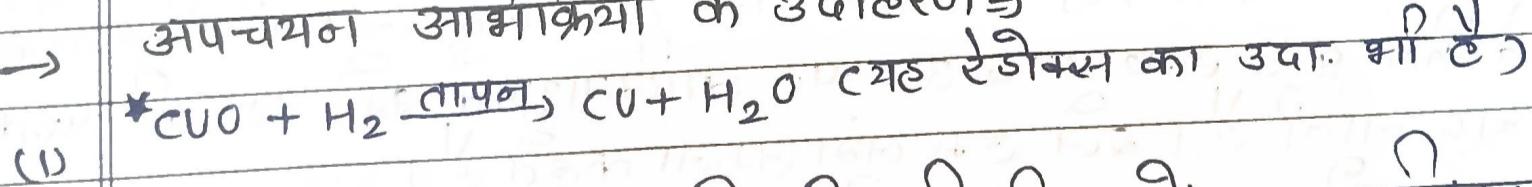 → अपचयन अभिक्रिया के उदाहरण
*CUO + H₂ —तापन→ CU + H₂O (यह रेडोक्स का उदा. भी है)
(1)